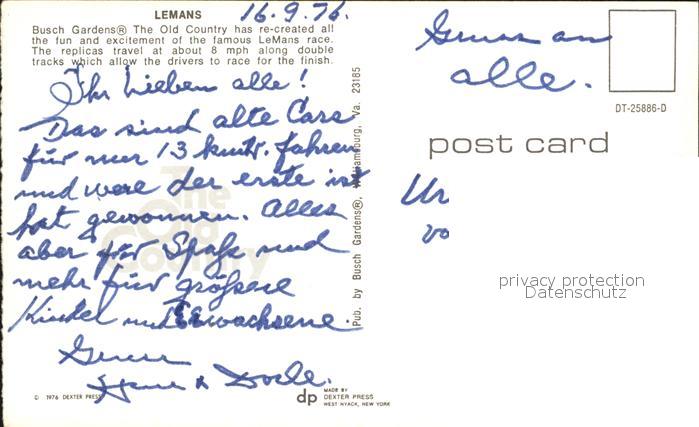 LEMANS
Busch Gardens® The Old Country has re-created all
the fun and excitement of the famous LeMans race.
The replicas travel at about 8 mph along double
tracks which allow the drivers to race for the finish.
16.9.76.
Ihr Lieben alle!
Das sind alte Cars
für nur 13 kmtr. fahren
und were der erste ist
hat gewonnen. Alles
aber für Spaß und
mehr für größere
Kinder und Erwachsene.
Gruss
The
Old
Country
© 1976 DEXTER PRESS
Pub. by Busch Gardens®, Williamsburg, Va. 23185
dp
MADE BY
DEXTER PRESS
WEST NYACK, NEW YORK
Gruss an
alle.
DT-25886-D
post card
Ur
vo
privacy protection
Datenschutz